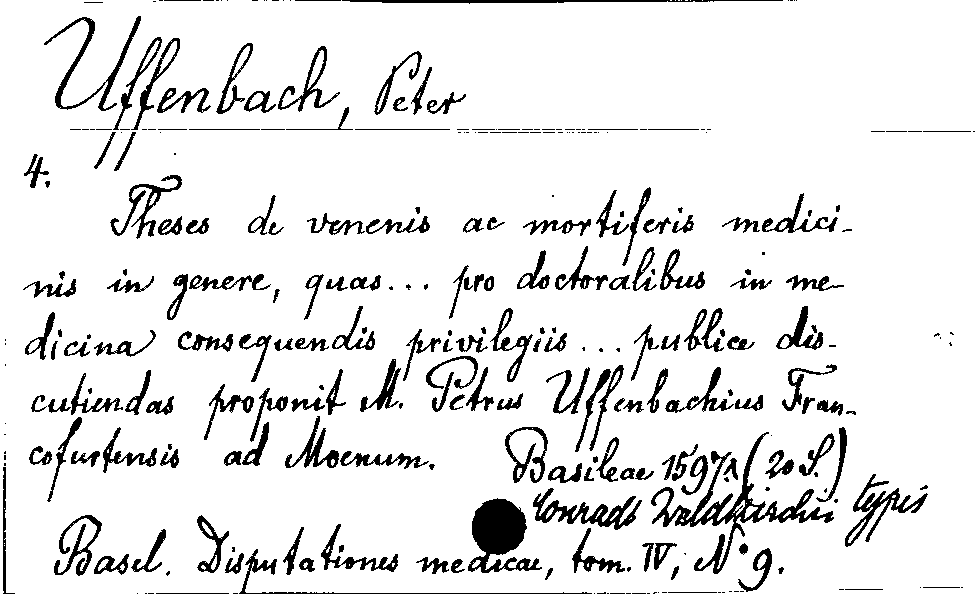 Uffenbach, Peter
4.
Theses de venenis ac mortiferis medici-
nis in genere, quas... pro doctoralibus in me-
dicina consequendis privilegiis... publice dis-
cutiendas proponit M. Petrus Uffenbachius Fran-
cofurtensis ad Moenum. Basileae 1597. (20 S.)
Conradi Waldkirchii typis
Basel. Disputationes medicae, tom. IV, No 9.